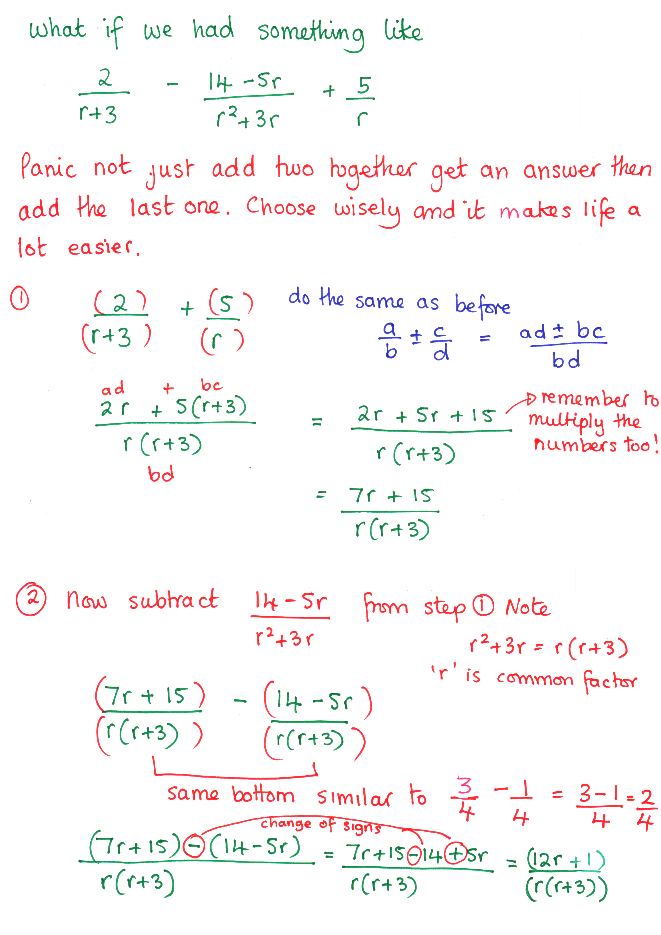 what if we had something like
2/(r+3) - (14-5r)/(r²+3r) + 5/r
Panic not just add two together get an answer then
add the last one. Choose wisely and it makes life a
lot easier.
① (2)/(r+3) + (5)/(r) do the same as before
a/b ± c/d = (ad ± bc)/bd
ad + bc
(2r + 5(r+3))/(r(r+3)) = (2r + 5r + 15)/(r(r+3)) → remember to
multiply the
numbers too!
bd
= (7r + 15)/(r(r+3))
② Now subtract (14-5r)/(r²+3r) from step ① Note
r²+3r = r(r+3)
'r' is common factor
(7r + 15)/(r(r+3)) - (14-5r)/(r(r+3))
same bottom similar to 3/4 - 1/4 = (3-1)/4 = 2/4
change of signs
((7r+15)-(14-5r))/(r(r+3)) = (7r+15-14+5r)/(r(r+3)) = (12r+1)/(r(r+3))